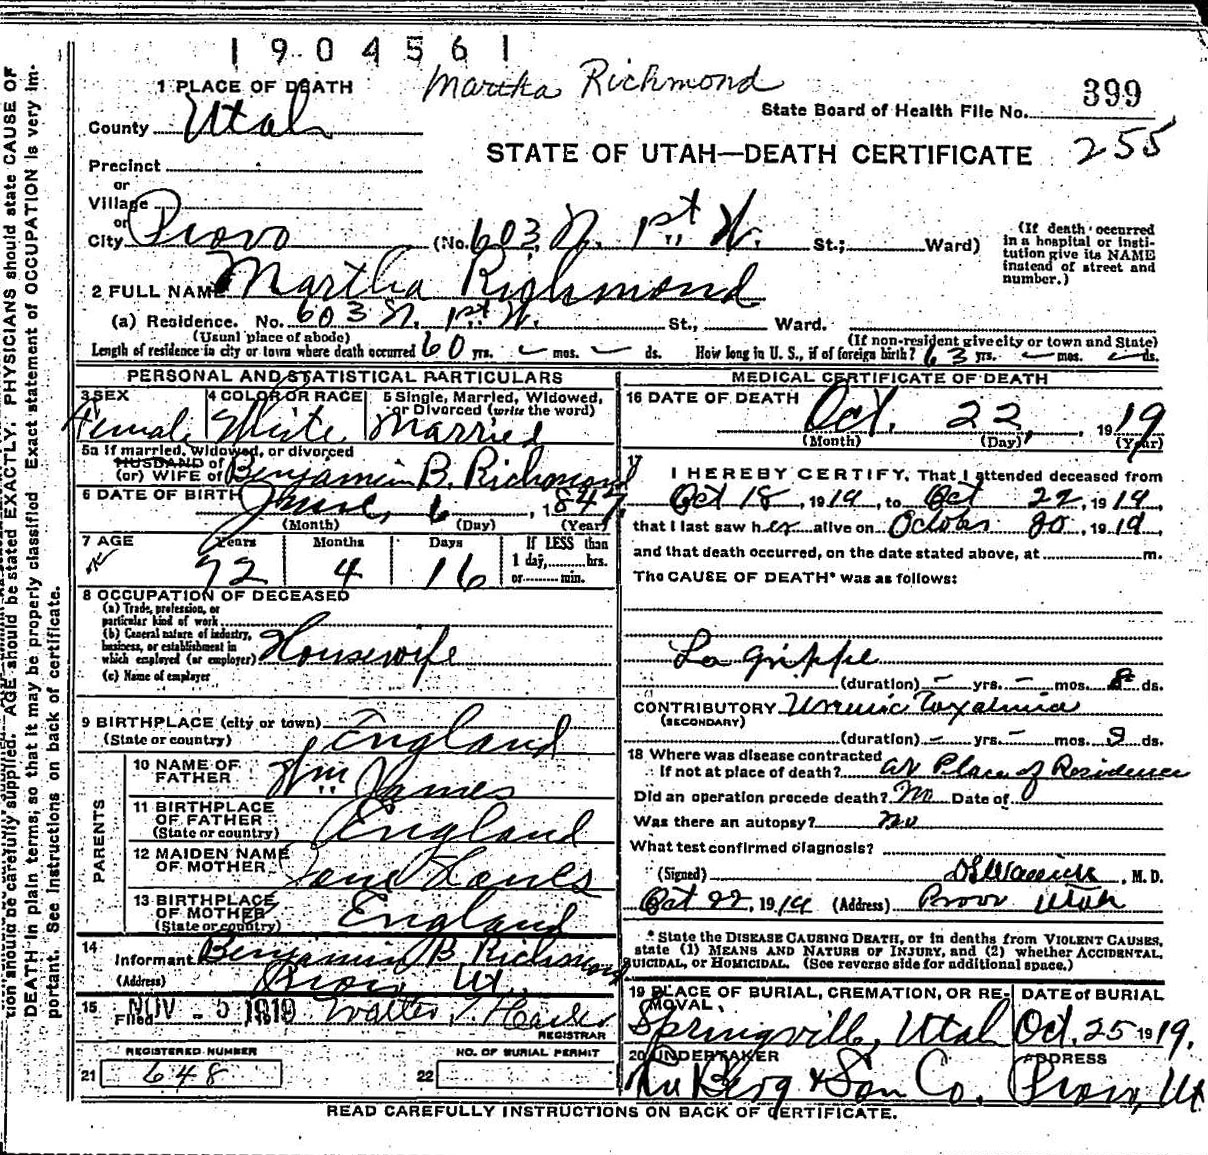 1904561
Martha Richmond
1 PLACE OF DEATH
State Board of Health File No. 399
County Utah
STATE OF UTAH—DEATH CERTIFICATE 255
Precinct
or
Village
or
City Provo (No. 603 N. 1st W. St.; Ward)
(If death occurred in a hospital or institution give its NAME instead of street and number.)
2 FULL NAME Martha Richmond
(a) Residence. No. 603 N. 1st W. St., Ward.
(Usual place of abode) (If non-resident give city or town and State)
Length of residence in city or town where death occurred 60 yrs. – mos. – ds. How long in U. S., if of foreign birth? 63 yrs. – mos. – ds.
PERSONAL AND STATISTICAL PARTICULARS
3 SEX 4 COLOR OR RACE 5 Single, Married, Widowed, or Divorced (write the word)
Female White Married
5a If married, widowed, or divorced
HUSBAND of
(or) WIFE of Benjamin B. Richmond
6 DATE OF BIRTH June, 6, 1847
(Month) (Day) (Year)
7 AGE Years Months Days If LESS than
1 day, hrs.
or min.
72 4 16
8 OCCUPATION OF DECEASED
(a) Trade, profession, or
particular kind of work
(b) General nature of industry,
business, or establishment in
which employed (or employer) Housewife
(c) Name of employer
9 BIRTHPLACE (city or town)
(State or country) England
PARENTS
10 NAME OF
FATHER Wm James
11 BIRTHPLACE
OF FATHER
(State or country) England
12 MAIDEN NAME
OF MOTHER Jane
13 BIRTHPLACE
OF MOTHER
(State or country) England
14
Informant Benjamin B Richmond
(Address) Provo Ut.
15
Filed NOV - 5 1919 Walter T
REGISTRAR
REGISTERED NUMBER NO. OF BURIAL PERMIT
21 648 22
MEDICAL CERTIFICATE OF DEATH
16 DATE OF DEATH
Oct. 22, 1919
(Month) (Day) (Year)
17
I HEREBY CERTIFY, That I attended deceased from
Oct 18, 1919, to Oct 22, 1919,
that I last saw her alive on 20, 1919,
and that death occurred, on the date stated above, at m.
The CAUSE OF DEATH* was as follows:
La Grippe
(duration) – yrs. – mos. 8 ds.
CONTRIBUTORY Uremic Toxaemia
(SECONDARY)
(duration) – yrs. – mos. 3 ds.
18 Where was disease contracted
If not at place of death? at Place of Residence
Did an operation precede death? No Date of
Was there an autopsy? no
What test confirmed diagnosis?
(Signed) , M. D.
Oct 22, 1919 (Address) Provo Utah
* State the DISEASE CAUSING DEATH, or in deaths from VIOLENT CAUSES,
state (1) MEANS AND NATURE OF INJURY, and (2) whether ACCIDENTAL,
SUICIDAL, or HOMICIDAL. (See reverse side for additional space.)
19 PLACE OF BURIAL, CREMATION, OR REMOVAL. DATE of BURIAL
Springville, Utah Oct. 25 1919.
20 UNDERTAKER ADDRESS
Berg & Son Co. Provo, Ut
READ CAREFULLY INSTRUCTIONS ON BACK OF CERTIFICATE.
tion should be carefully supplied. AGE should be stated EXACTLY. PHYSICIANS should state CAUSE OF
DEATH in plain terms, so that it may be properly classified. Exact statement of OCCUPATION is very im-
portant. See Instructions on back of certificate.